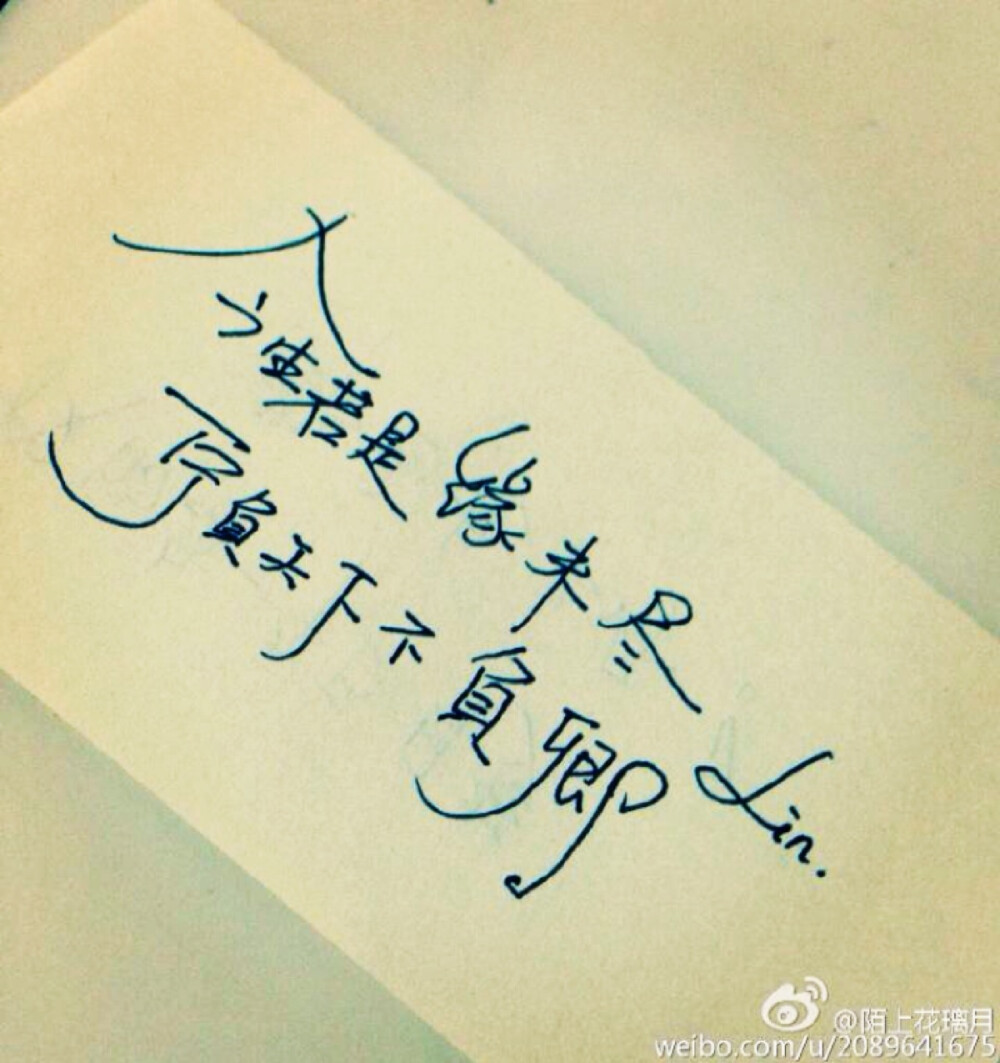 今生若是缘未尽
宁负天下不负卿 Lin.
@陌上花璃月
weibo.com/u/2089641675